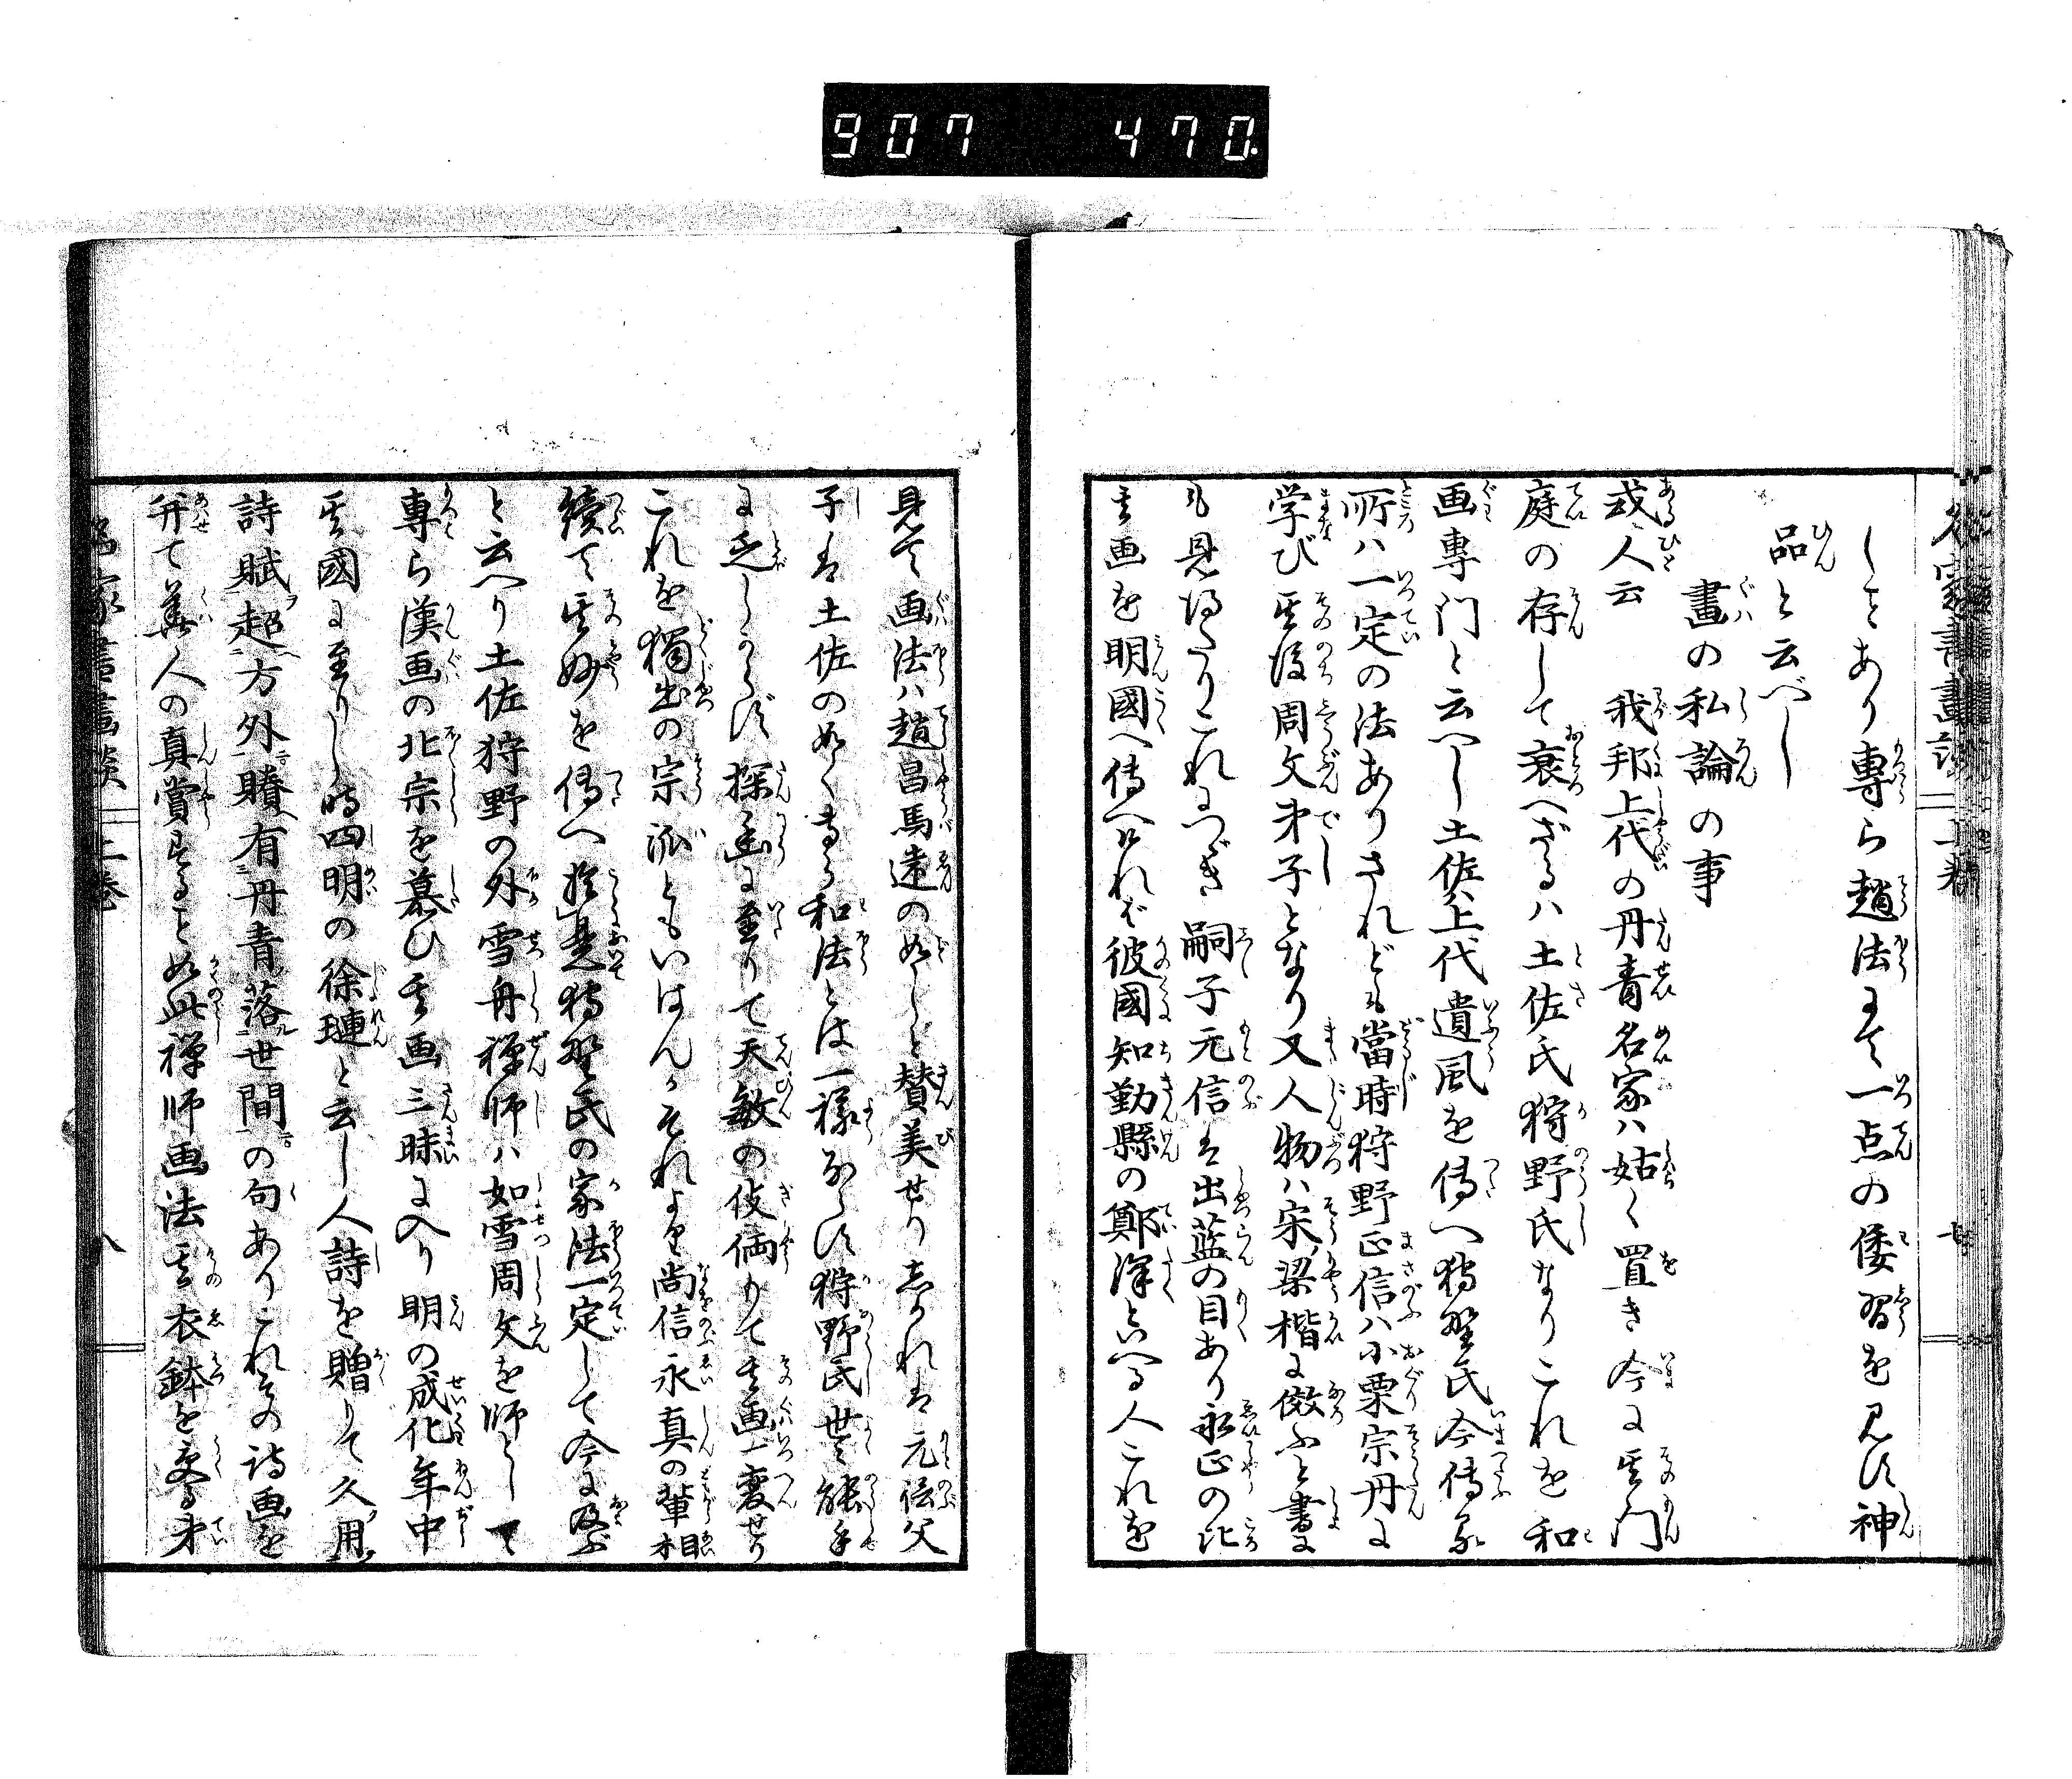 907 470
しとあり専ら趙法にて一点の倭習を見ず神
品と云べし
畫の私論の事
或人云 我邦上代の丹青名家ハ姑く置き今に其門
庭の存して衰へざるハ土佐氏狩野氏なりこれを和
画専门と云へし土佐上代遺風を傳へ狩野氏今傳ふ
所ハ一定の法ありされども當時狩野正信ハ小栗宗丹に
学び其後周文弟子となり又人物ハ宋梁楷に倣ふと畫に
も見得たりこれにつぎ嗣子元信は出藍の目あり永正の比
其画を明國へ傳へけれバ彼國知勤縣の鄭澤といへる人これを
見て画法ハ趙昌馬遠の如しと賛美せりされは元信父
子は土佐の如く専ら和法とは一様ならず狩野氏世々能手
に乏しからず探幽に至りて天敏の伎倆ありて其画一変せり
これを獨出の宗派ともいはんかそれより尚信永真の輩相
續て其妙を傳へ於是狩野氏の家法一定して今に及ぶ
と云へり土佐狩野の外雪舟禅师ハ如雪周文を师として
専ら漢画の北宗を慕ひ其画三昧に入り明の成化年中
其國に至りし時四明の徐璉と云し人詩を贈りて久用
詩賦超方外賸有丹青落世間の句ありこれその詩画を
并て華人の真賞すること如此禅师画法其衣鉢を受る弟
名家書畫談 上巻 八